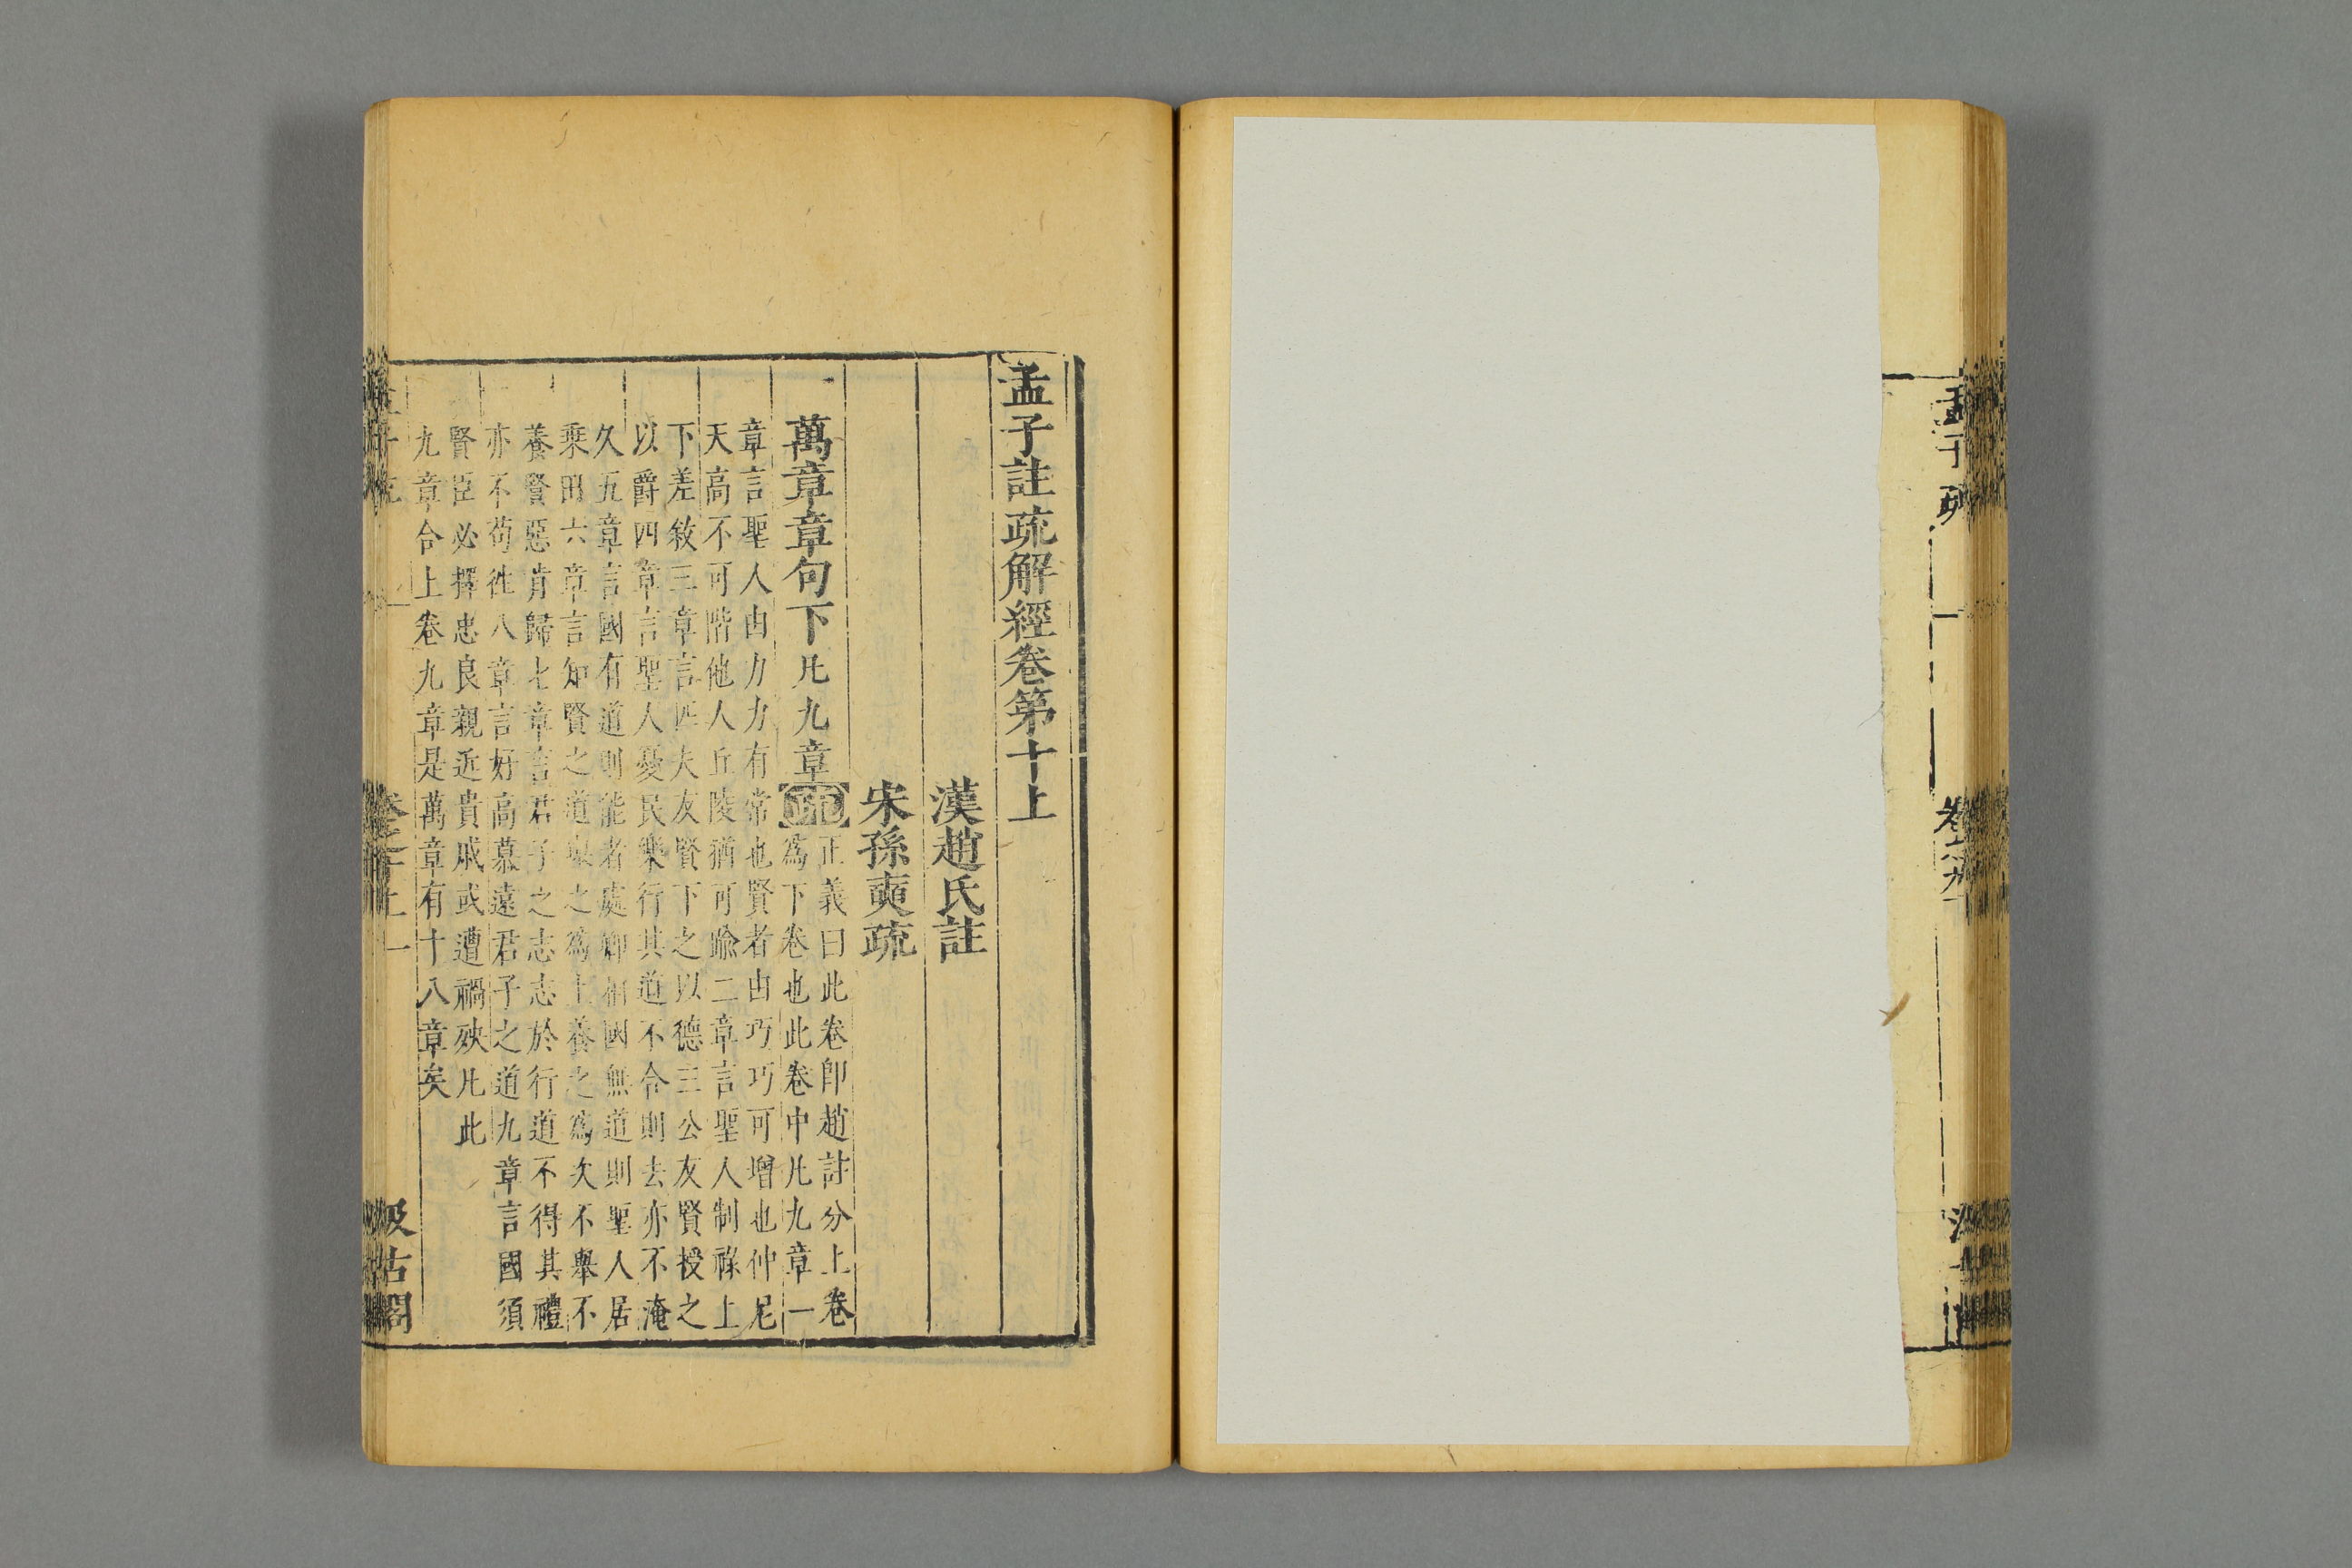 孟子註疏解經卷第十上
漢趙氏註
宋孫奭疏
萬章章句下凡九章疏
正義曰此卷即趙註分上卷
爲下卷也此卷中凡九章一
章言聖人由力力有常也賢者由巧巧可增也仲尼
天高不可階他人丘陵猶可踰二章言聖人制祿上
下差敘三章言匹夫友賢下之以德王公友賢授之
以爵四章言聖人憂民樂行其道不合則去亦不淹
久五章言國有道則能者處卿相國無道則聖人居
乘田六章言知賢之道舉之爲上養之爲次不舉不
養賢惡肯歸七章言君子之志志於行道不得其禮
亦不苟往八章言好高慕遠君子之道九章言國須
賢臣必擇忠良親近貴戚或遭禍殃凡此
九章合上卷九章是萬章有十八章矣
卷之十上
一
汲古閣
孟子疏